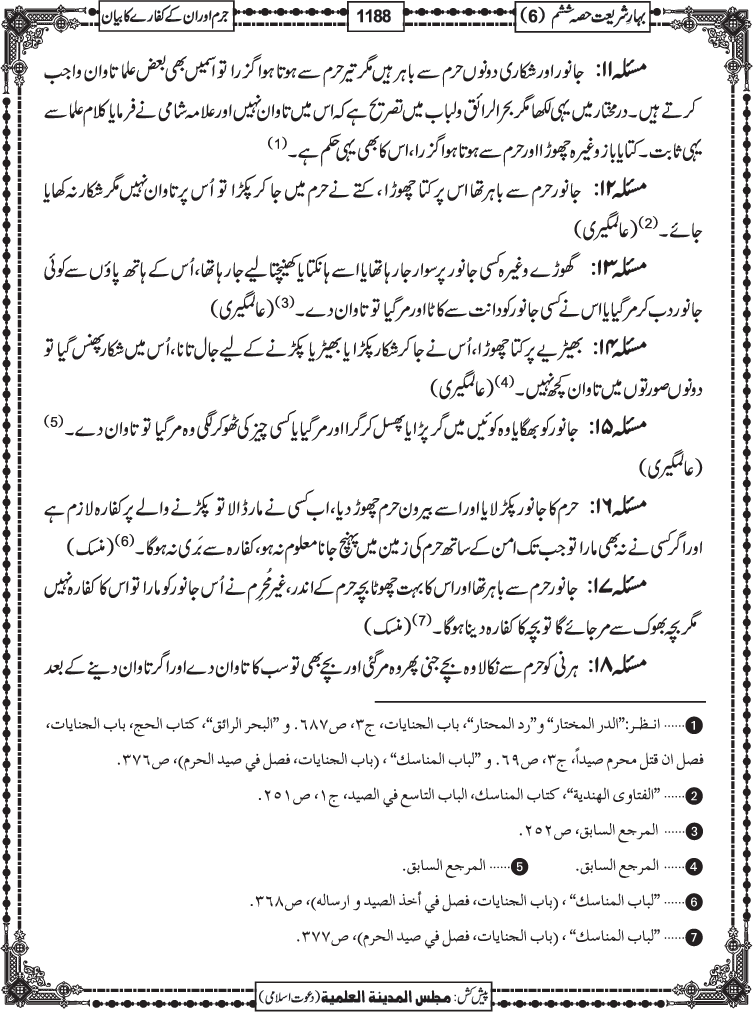 بہار شریعت حصہ ششم (6)
1188
جرم اور ان کے کفارے کا بیان
مسئلہ ۱۱: جانور اور شکاری دونوں حرم سے باہر ہیں مگر تیر حرم سے ہوتا ہوا گزرا تو اسمیں بھی بعض علما تاوان واجب
کرتے ہیں۔ درمختار میں یہی لکھا مگر بحرالرائق ولباب میں تصریح ہے کہ اس میں تاوان نہیں اور علامہ شامی نے فرمایا کلام علما سے
یہی ثابت۔ کتا یا باز وغیرہ چھوڑا اور حرم سے ہوتا ہوا گزرا، اس کا بھی یہی حکم ہے۔ (1)
مسئلہ ۱۲: جانور حرم سے باہر تھا اس پر کتا چھوڑا، کتے نے حرم میں جا کر پکڑا تو اُس پر تاوان نہیں مگر شکار نہ کھایا
جائے۔ (2) (عالمگیری)
مسئلہ ۱۳: گھوڑے وغیرہ کسی جانور پر سوار جا رہا تھا یا اسے ہانکتا یا کھینچتا لیے جا رہا تھا، اُس کے ہاتھ پاؤں سے کوئی
جانور دب کر مر گیا یا اس نے کسی جانور کو دانت سے کاٹا اور مر گیا تو تاوان دے۔ (3) (عالمگیری)
مسئلہ ۱۴: بھیڑیے پر کتا چھوڑا، اُس نے جا کر شکار پکڑا یا بھیڑیا پکڑنے کے لیے جال تانا، اُس میں شکار پھنس گیا تو
دونوں صورتوں میں تاوان کچھ نہیں۔ (4) (عالمگیری)
مسئلہ ۱۵: جانور کو بھگایا وہ کوئیں میں گر پڑا یا پھسل کر گرا اور مر گیا یا کسی چیز کی ٹھوکر لگی وہ مر گیا تو تاوان دے۔ (5)
(عالمگیری)
مسئلہ ۱۶: حرم کا جانور پکڑ لایا اور اسے بیرون حرم چھوڑ دیا، اب کسی نے مار ڈالا تو پکڑنے والے پر کفارہ لازم ہے
اور اگر کسی نے نہ بھی مارا تو جب تک امن کے ساتھ حرم کی زمین میں پہنچ جانا معلوم نہ ہو، کفارہ سے بَری نہ ہوگا۔ (6) (منسک)
مسئلہ ۱۷: جانور حرم سے باہر تھا اور اس کا بہت چھوٹا بچہ حرم کے اندر، غیر مُحْرِم نے اُس جانور کو مارا تو اس کا کفارہ نہیں
مگر بچہ بھوک سے مر جائے گا تو بچہ کا کفارہ دینا ہوگا۔ (7) (منسک)
مسئلہ ۱۸: ہرنی کو حرم سے نکالا وہ بچے جنی پھر وہ مر گئی اور بچے بھی تو سب کا تاوان دے اور اگر تاوان دینے کے بعد
1 ...... انظر: "الدر المختار" و"رد المحتار"، باب الجنايات، ج۳، ص۶۸۷. و "البحر الرائق"، كتاب الحج، باب الجنايات،
فصل ان قتل محرم صيداً، ج۳، ص۶۹. و "لباب المناسك" ، (باب الجنايات، فصل في صيد الحرم)، ص۳۷۶.
2 ...... "الفتاوى الهندية"، كتاب المناسك، الباب التاسع في الصيد، ج۱، ص۲۵۱.
3 ...... المرجع السابق، ص۲۵۲.
4 ...... المرجع السابق. 5 ...... المرجع السابق.
6 ...... "لباب المناسك" ، (باب الجنايات، فصل في أخذ الصيد و ارساله)، ص۳۶۸.
7 ...... "لباب المناسك" ، (باب الجنايات، فصل في صيد الحرم)، ص۳۷۷.
پیش کش: مجلس المدينة العلمية (دعوت اسلامی)